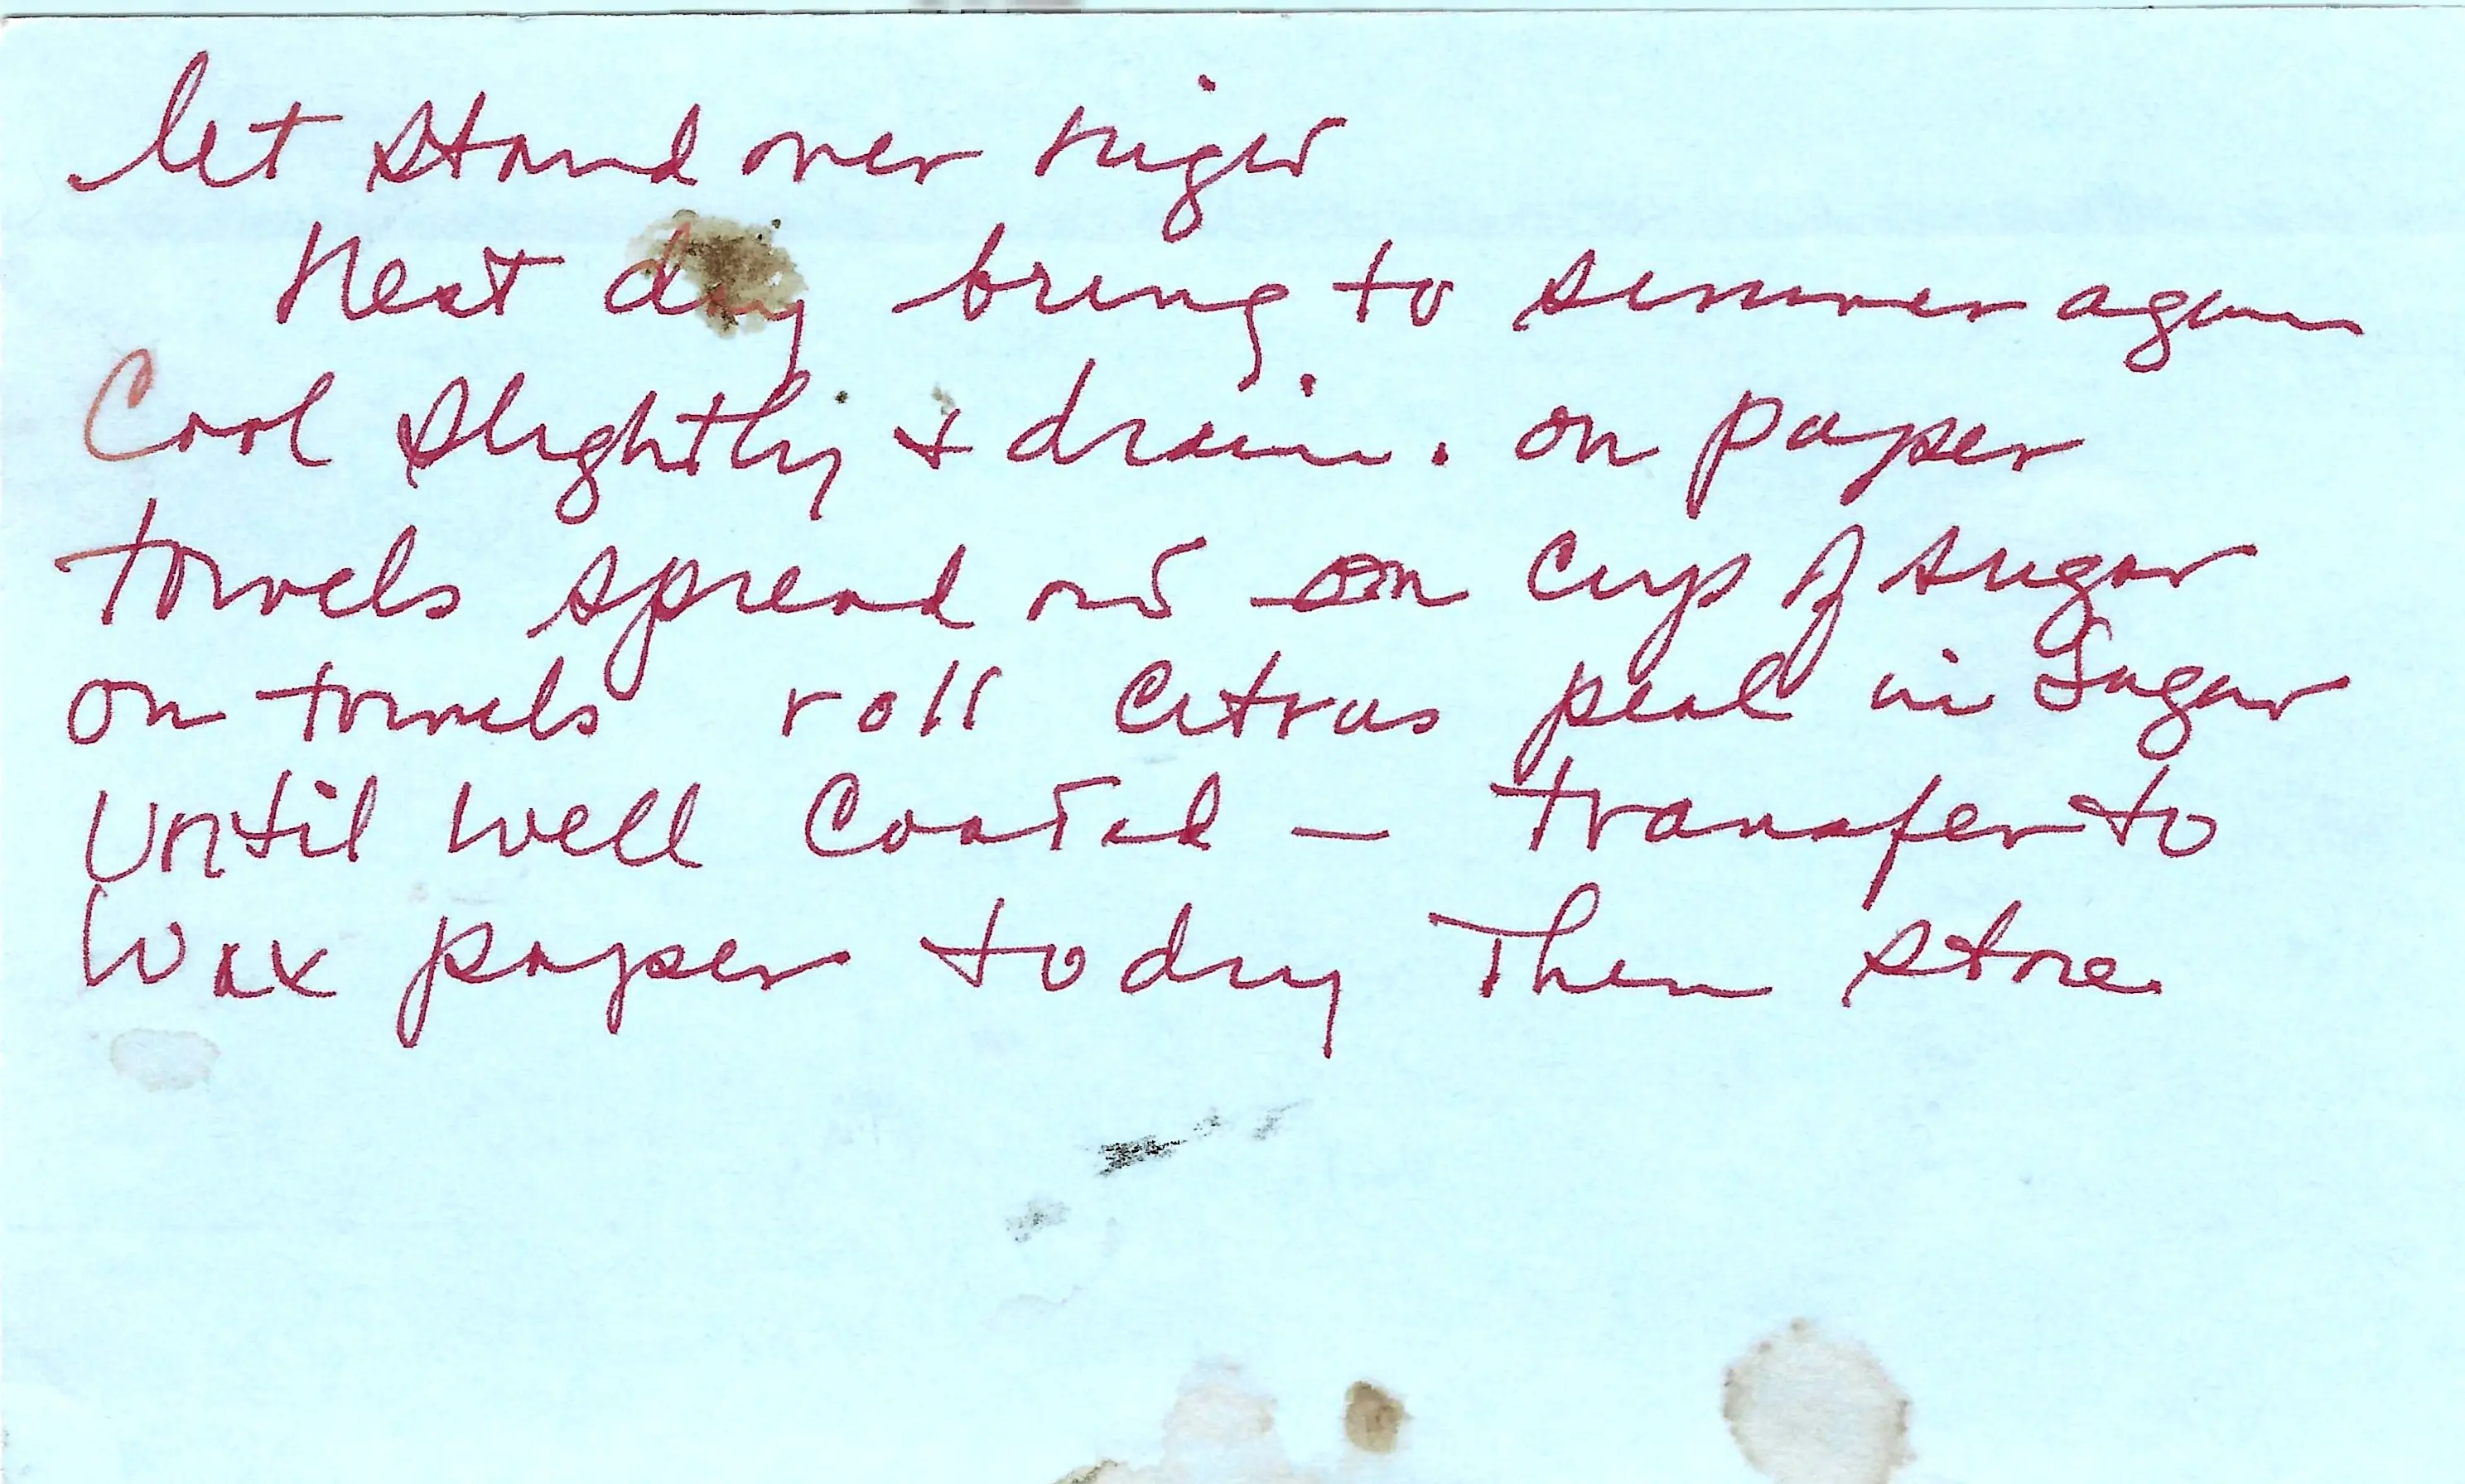 let stand over night
Next day bring to simmer again
Cool slightly + drain. on paper
towels spread out on cup of sugar
on towels roll citrus peal in sugar
Until well Coated — transfer to
Wax paper to dry Then store